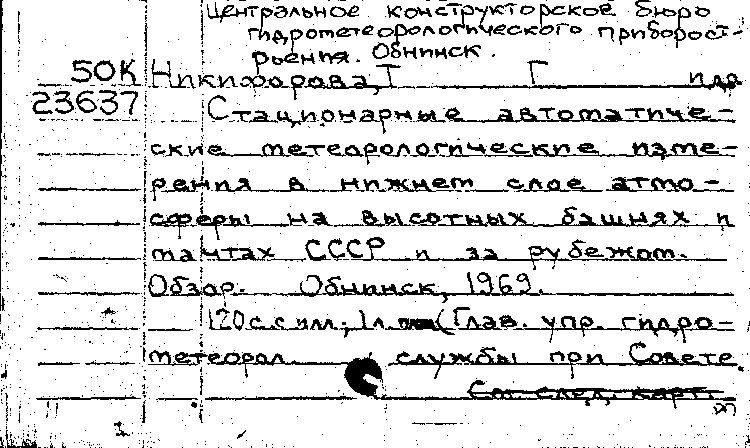 Центральное конструкторское бюро
гидрометеорологического приборост-
роения. Обнинск.
50К Никифорова, Г Г
23637 Стационарные автоматиче-
ские метеорологические изме-
рения в нижнем слое атмо-
сферы на высотных башнях и
мачтах СССР и за рубежом.
Обзор. Обнинск, 1969.
120 с. с илл.; 1 л. (Глав. упр. гидро-
метеорол. службы при Совете
См. след. карт.
1